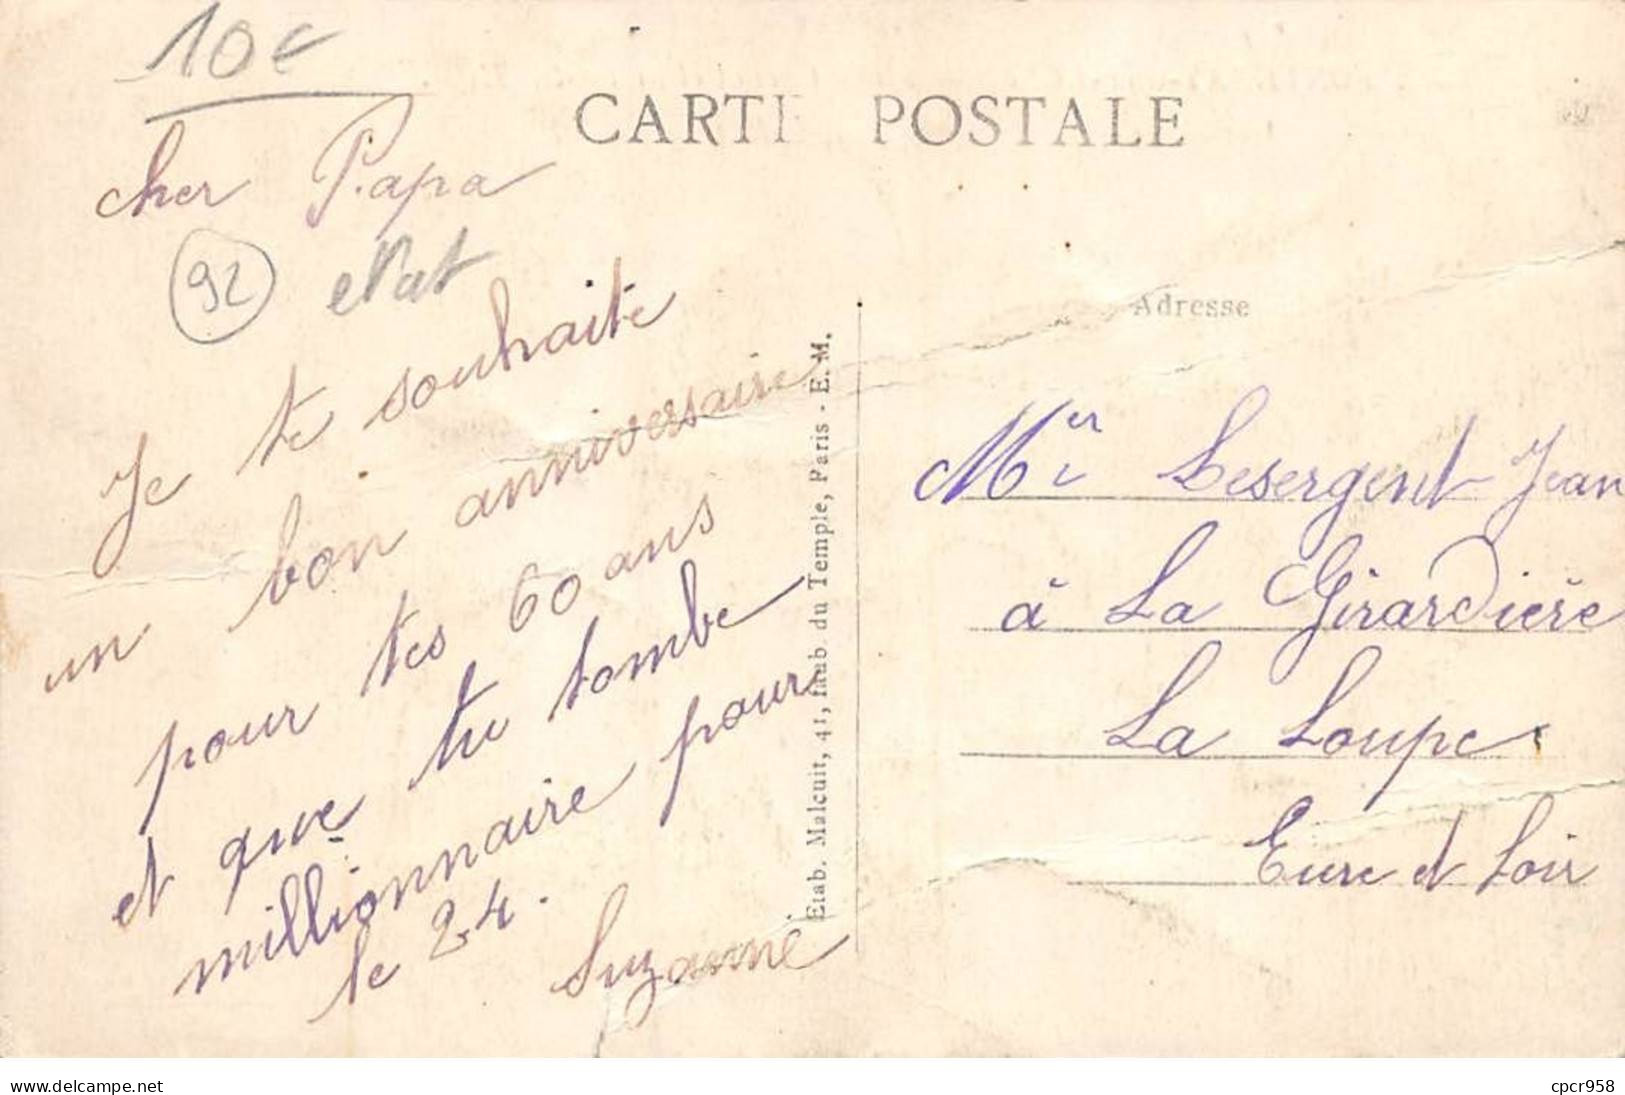 10€
CARTE POSTALE
cher Papa
92 etat
Je te souhaite
un bon anniversaire
pour tes 60 ans
et que tu tombe
millionnaire pour
le 24.
Suzanne
Etab. Malcuit, 41, faub. du Temple, Paris - E. M.
Adresse
Mr Lesergent Jean
à La Girardière
La Loupe
Eure et Loir
www.delcampe.net
cpcr958